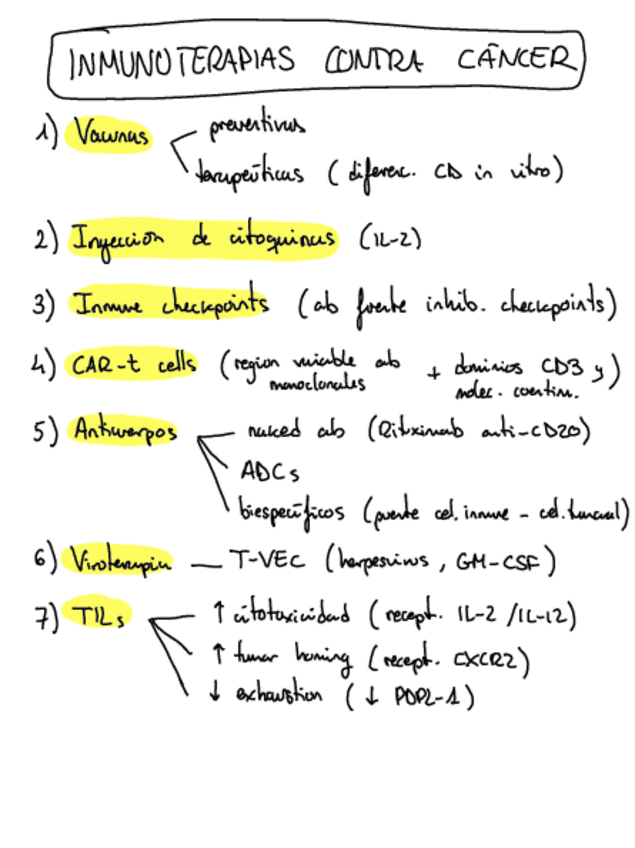 INMUNOTERAPIAS CONTRA CÁNCER
1) Vacunas
preventivas
terapeúticas (diferenc. CD in vitro)
2) Inyección de citoquinas (IL-2)
3) Inmune checkpoints (ab frente inhib. checkpoints)
4) CAR-t cells (region variable ab monoclonales + dominios CD3 y molec. coestim.)
5) Anticuerpos
naked ab (Rituximab anti-CD20)
ADCs
biespecíficos (puente cel. inmune - cel. tumoral)
6) Viroterapia — T-VEC (herpesvirus, GM-CSF)
7) TILs
↑ citotoxicidad (recept. IL-2 / IL-12)
↑ tumor homing (recept. CXCR2)
↓ exhaustion (↓ PDPL-1)